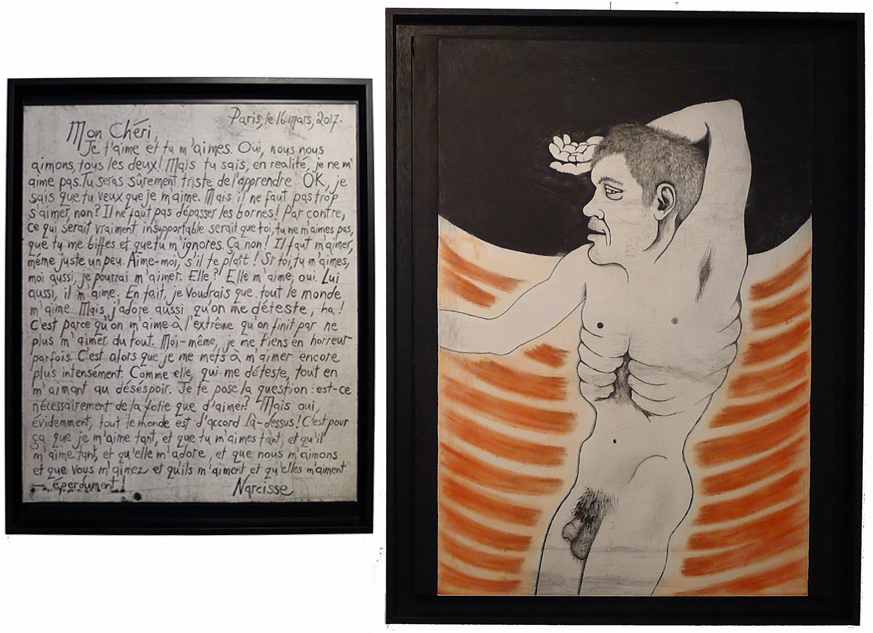 Paris, le 16 mars, 2017.
Mon Chéri,
Je t'aime et tu m'aimes. Oui, nous nous
aimons, tous les deux! Mais tu sais, en réalité, je ne m'
aime pas. Tu seras sûrement triste de l'apprendre. OK, je
sais que tu veux que je m'aime. Mais il ne faut pas trop
s'aimer, non? Il ne faut pas dépasser les bornes! Par contre,
ce qui serait vraiment insupportable serait que toi, tu ne m'aimes pas,
que tu me biffes et que tu m'ignores. Ça non! Il faut m'aimer,
même juste un peu. Aime-moi, s'il te plaît! Si toi, tu m'aimes,
moi aussi, je pourrai m'aimer. Elle? Elle m'aime, oui. Lui
aussi, il m'aime. En fait, je voudrais que tout le monde
m'aime. Mais j'adore aussi qu'on me déteste, ha!
C'est parce qu'on m'aime à l'extrême qu'on finit par ne
plus m'aimer du tout. Moi-même, je me tiens en horreur
parfois. C'est alors que je me mets à m'aimer encore
plus intensement. Comme elle, qui me déteste, tout en
m'aimant au désespoir. Je te pose la question: est-ce
nécessairement de la folie que d'aimer? Mais oui,
évidemment, tout le monde est d'accord là-dessus! C'est pour
ça que je m'aime tant, et que tu m'aimes tant, et qu'il
m'aime tant, et qu'elle m'adore, et que nous m'aimons
et que vous m'aimez et qu'ils m'aiment et qu'elles m'aiment
— éperdument!
Narcisse